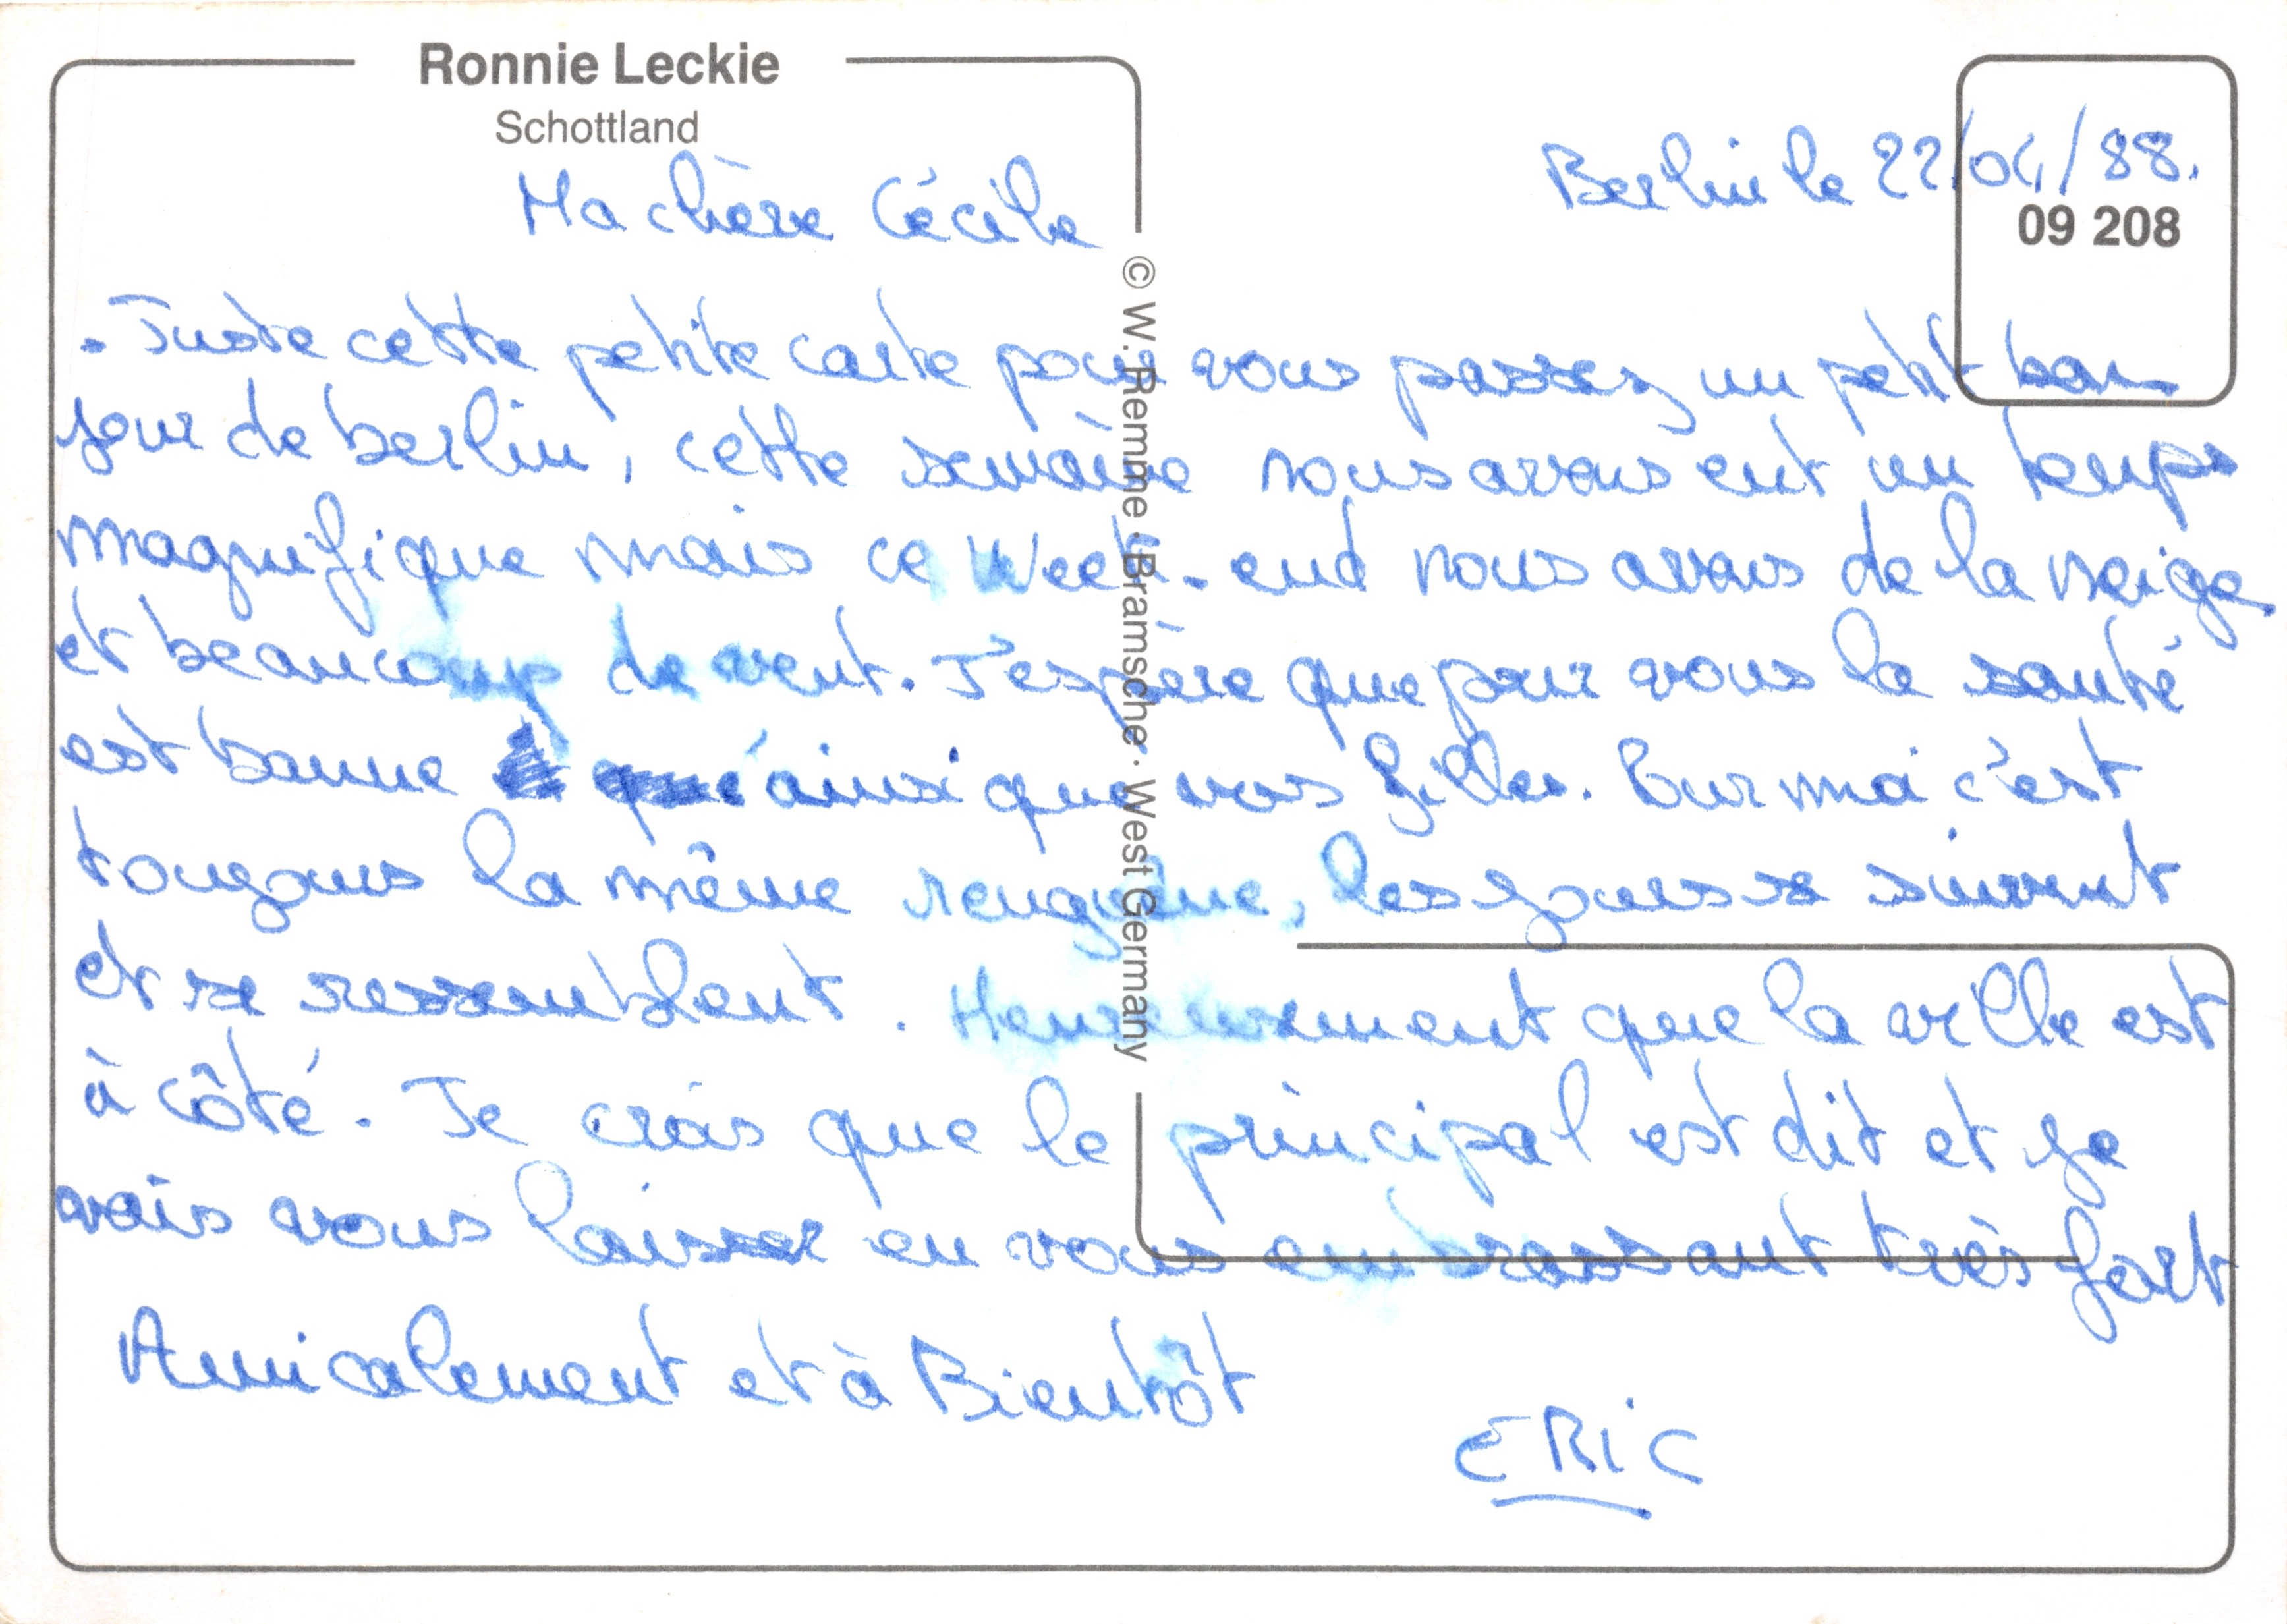 Ronnie Leckie
Schottland
Berlin le 22/04/88.
09 208
Ma chère Cécile
© W. Remme · Bramsche · West Germany
- Juste cette petite carte pour vous passez un petit bon
jour de berlin, cette semaine nous avons eut un temps
magnifique mais ce Week-end nous avons de la neige
et beaucoup de vent. J'espère que pour vous la santé
est bonne ainsi que vos filles. Pour moi c'est
toujours la même rengaine, les jours se suivent
et se ressemblent. Heureusement que la ville est
à côté. Je crois que le principal est dit et je
vais vous laisser en vous embrassant très fort
Amicalement et à Bientôt
ERIC